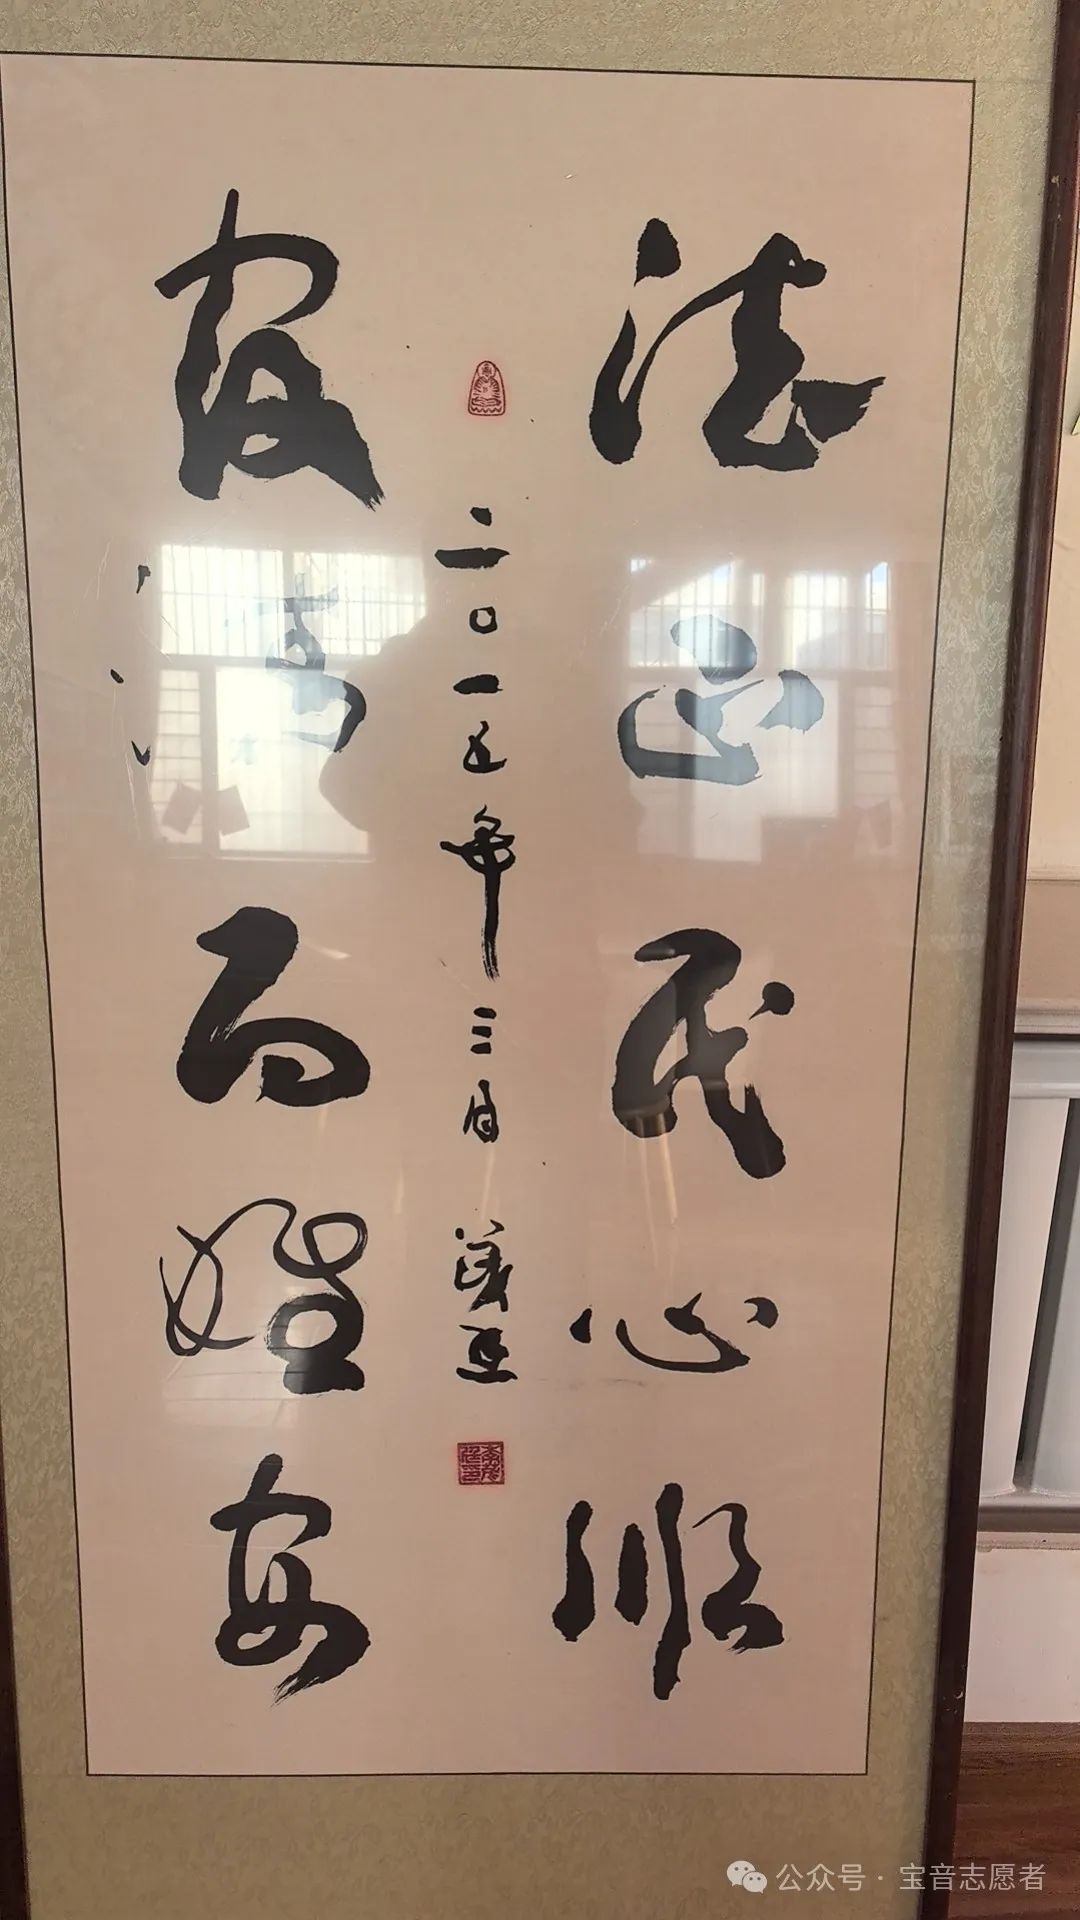 法正民心顺
二〇一五年三月
官清百姓安
公众号 · 宝音志愿者